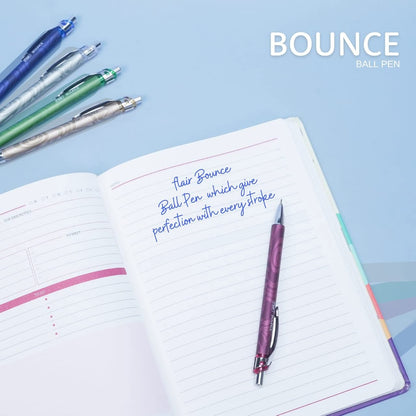 BOUNCE
BALL PEN
flair Bounce
Ball Pen which give
perfection with every stroke